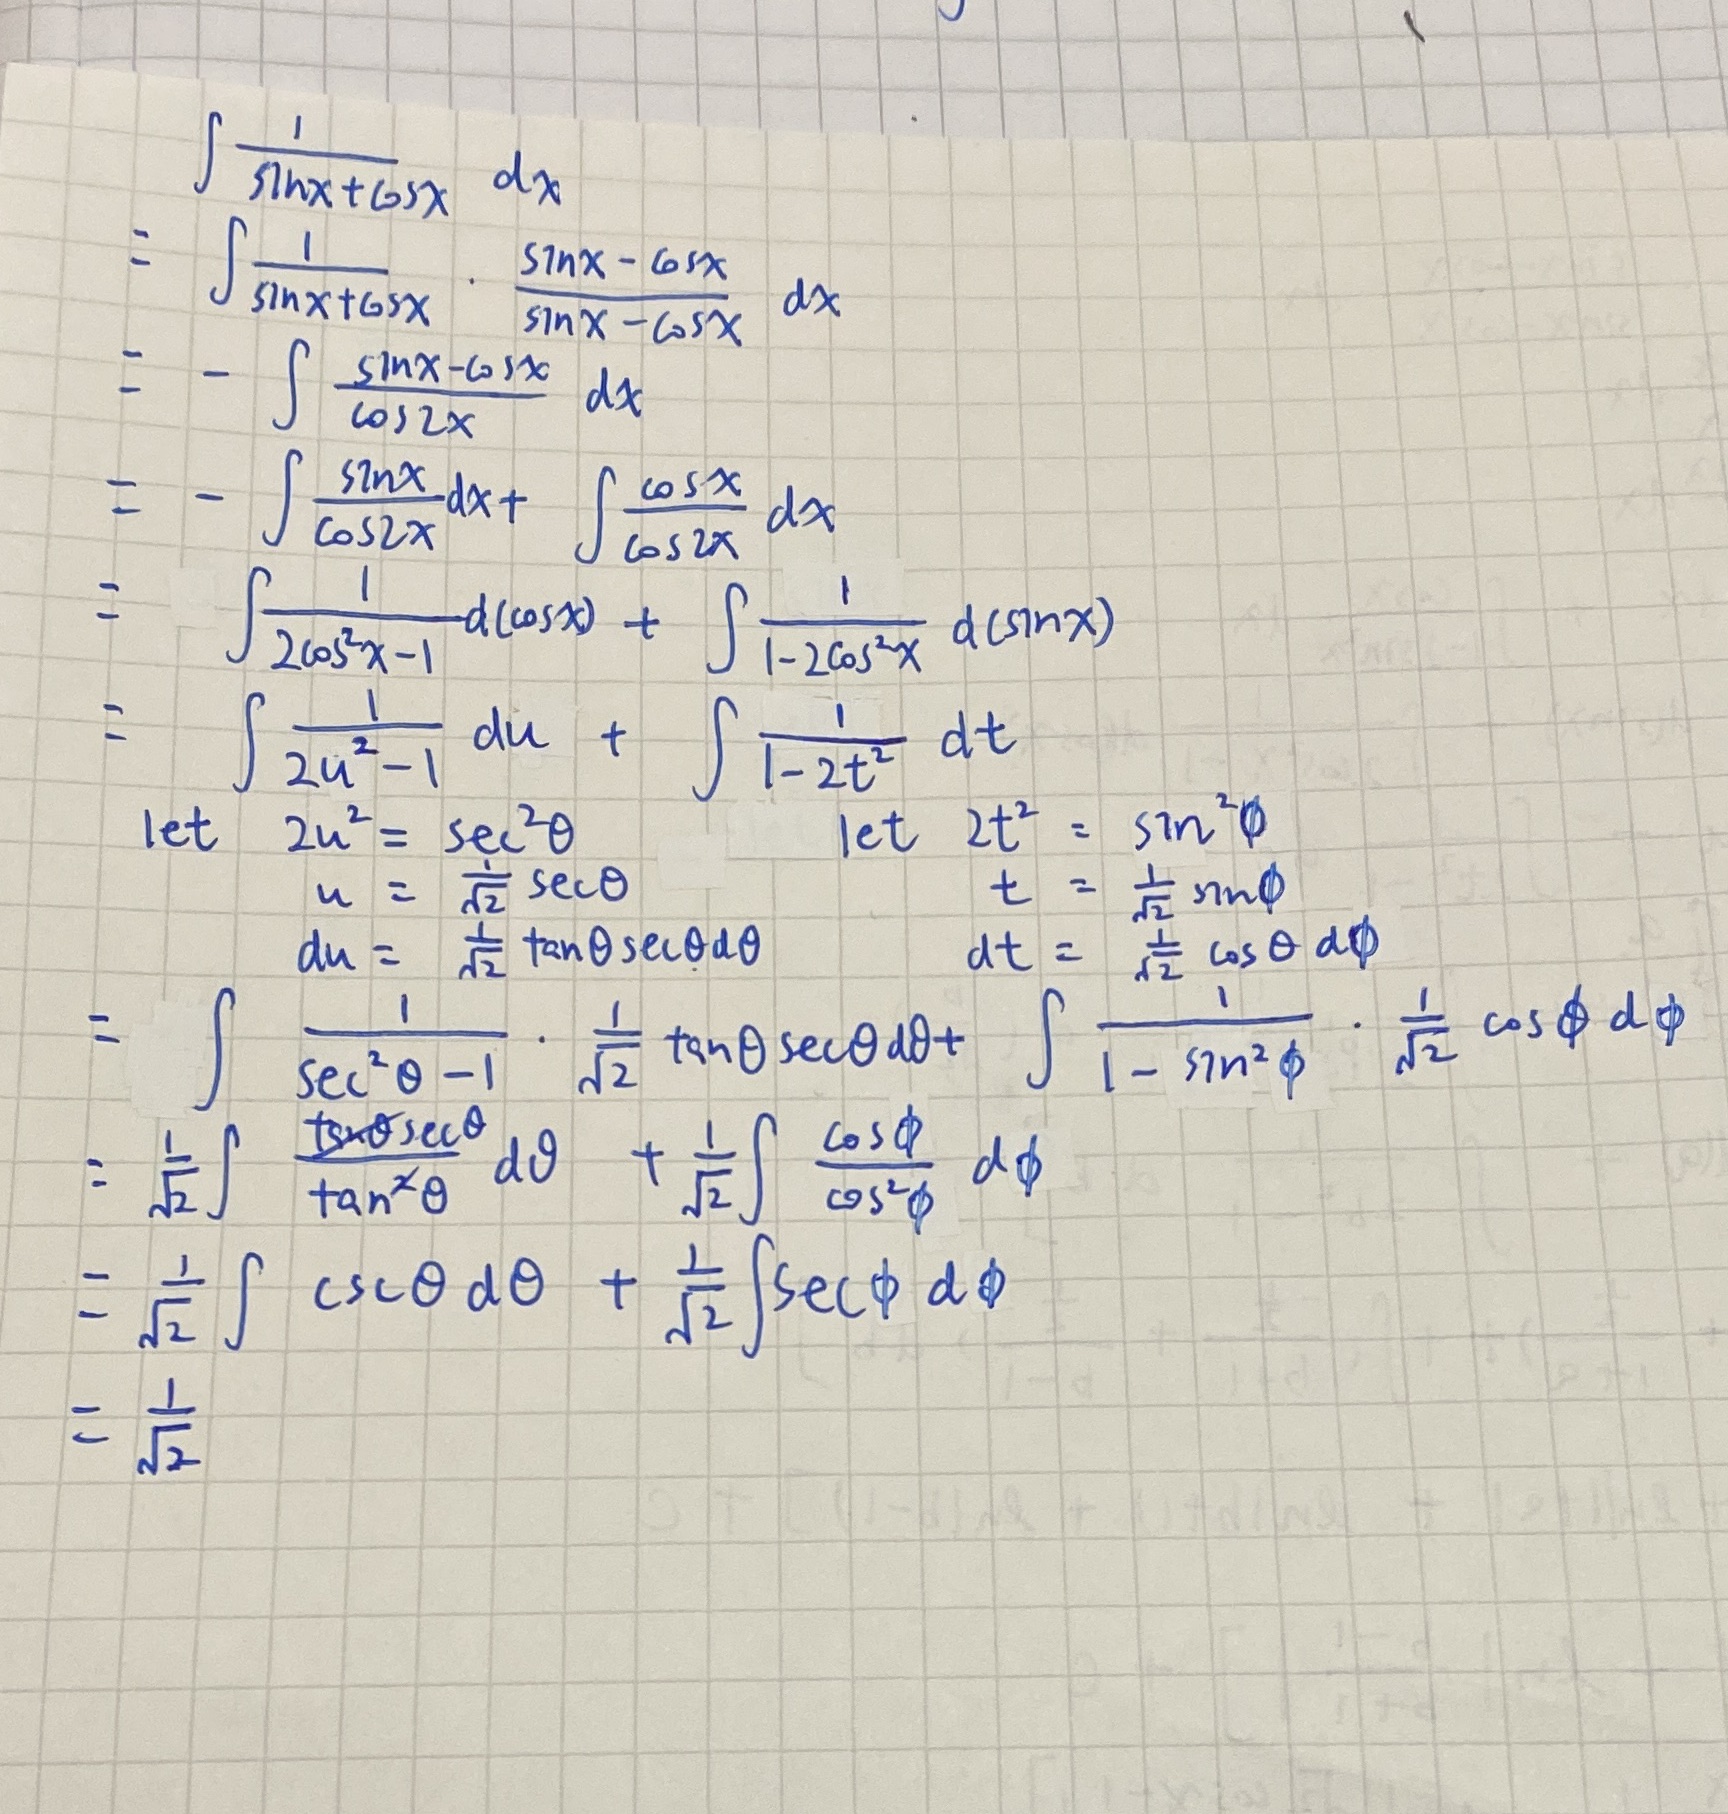 ∫ 1/(sinx+cosx) dx
= ∫ 1/(sinx+cosx) · (sinx-cosx)/(sinx-cosx) dx
= - ∫ (sinx-cosx)/cos2x dx
= - ∫ sinx/cos2x dx + ∫ cosx/cos2x dx
= ∫ 1/(2cos²x-1) d(cosx) + ∫ 1/(1-2cos²x) d(sinx)
= ∫ 1/(2u²-1) du + ∫ 1/(1-2t²) dt
let 2u² = sec²θ let 2t² = sin²ϕ
u = 1/√2 secθ t = 1/√2 sinϕ
du = 1/√2 tanθ secθ dθ dt = 1/√2 cosθ dϕ
= ∫ 1/(sec²θ-1) · 1/√2 tanθ secθ dθ + ∫ 1/(1-sin²ϕ) · 1/√2 cosϕ dϕ
= 1/√2 ∫ tanθ secθ/tan²θ dθ + 1/√2 ∫ cosϕ/cos²ϕ dϕ
= 1/√2 ∫ cscθ dθ + 1/√2 ∫ secϕ dϕ
= 1/√2